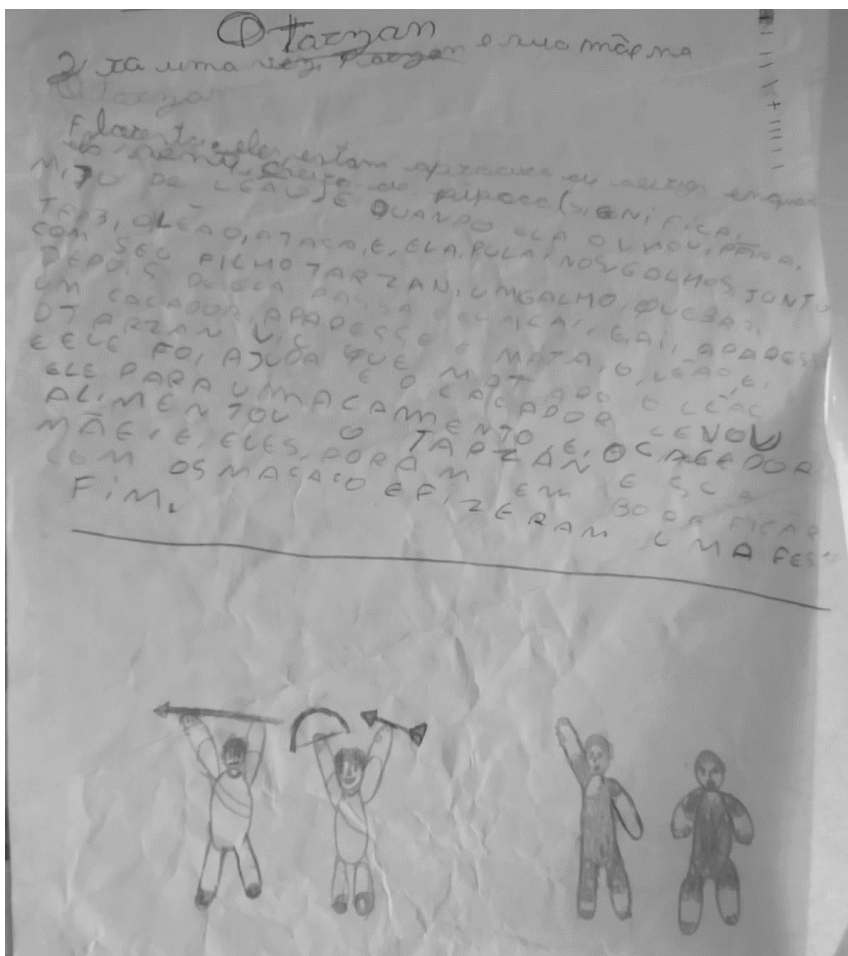 O tarzan
era uma vez tarzan e sua mãe na
tarzan
Floresta eles estam
do cheiro de pipoca (SIGNIFICA,
MIJU DE LEÃO) E QUANDO ELA OLHOU, PARA,
TRAS, OLEÃO, ATACA, E, ELA, PULA, NOSGOLHOS, JUNTO
COM SEU FILHO TARZAN, UMGALHO, QUEBRA,
DEPOIS PASSA ELA, CAI, E, AI, APARESS
UM CAÇADOR, APARESSE E MATA, O, LEÃO, E,
OTARZAN VIS QUE O MATADO O LEÃO
E ELE FOI, AJUDA E O CAÇADOR LEVOU
ELE PARA UMACAMENTO, E, OCAÇADOR
ALIMENTOU O TARZAN E SUA
MÃE, E, ELES, FORAM EM BORA FICAR
COM OSMACACO EFIZERAM UMA FES
FIM.